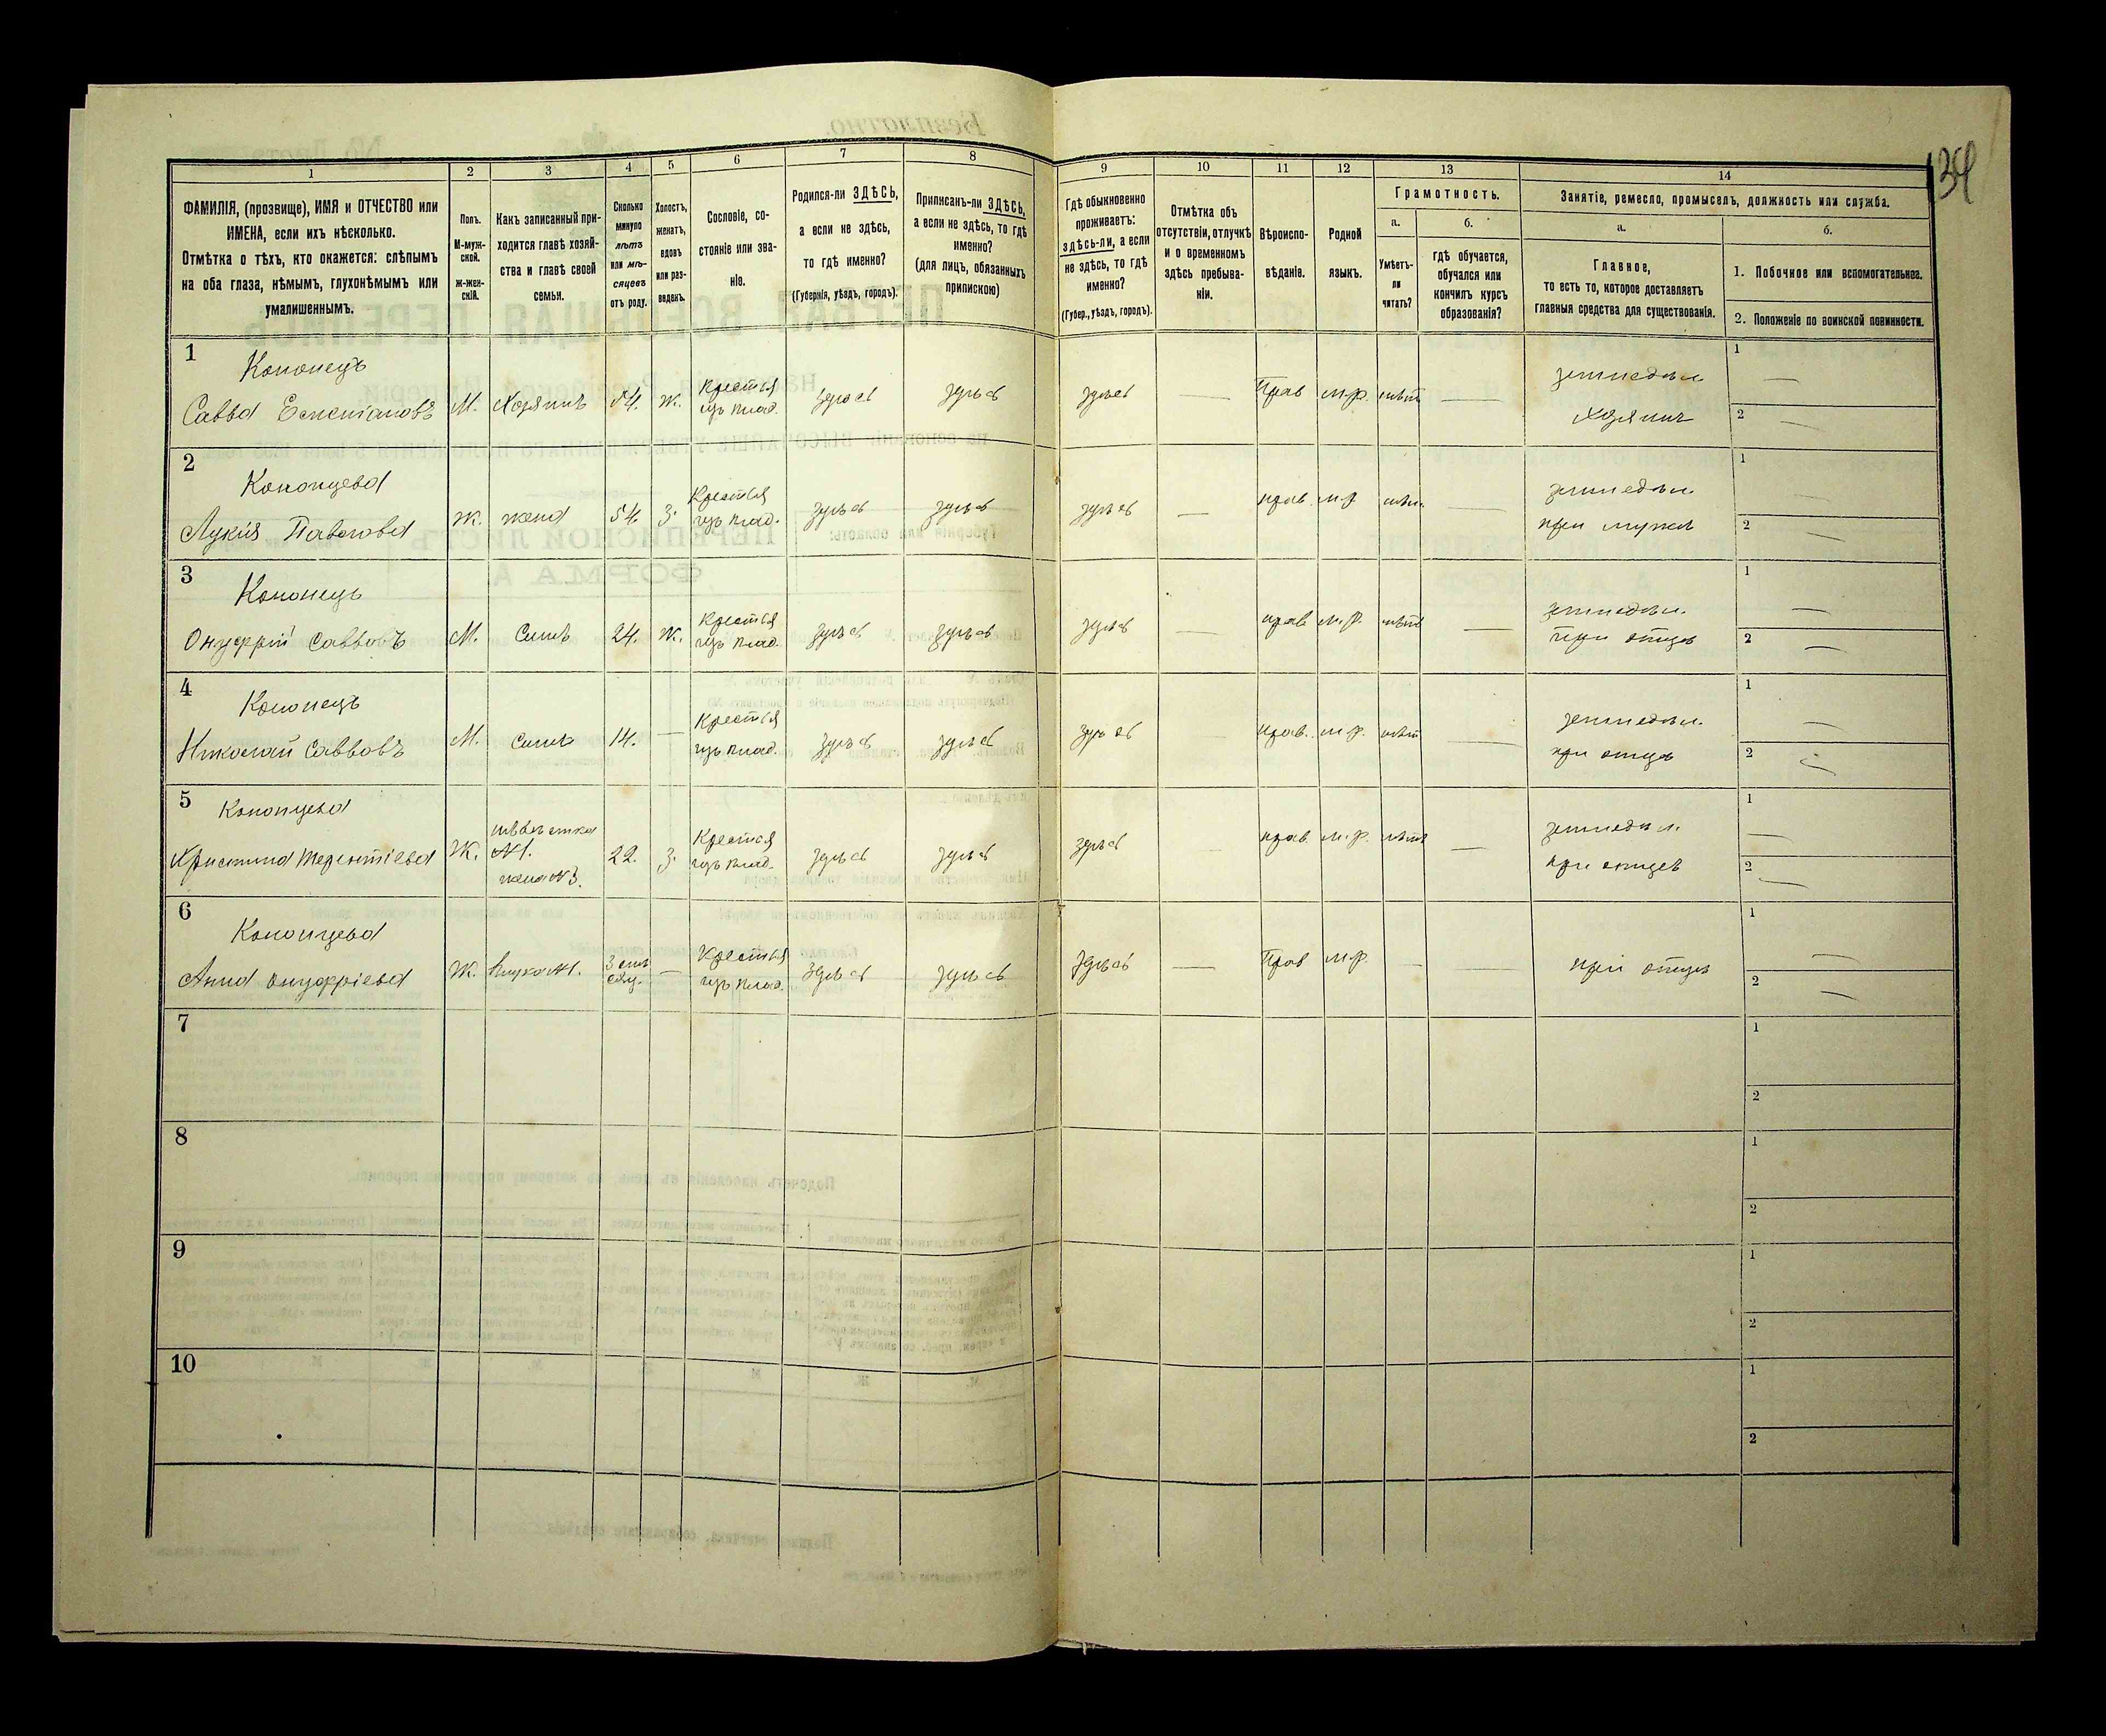 134
1
2
3
4
5
6
7
8
9
10
11
12
13
14
ФАМИЛІЯ, (прозвище), ИМЯ и ОТЧЕСТВО или
ИМЕНА, если ихъ нѣсколько.
Отмѣтка о тѣхъ, кто окажется: слѣпымъ
на оба глаза, нѣмымъ, глухонѣмымъ или
умалишеннымъ.
Полъ.
М-муж-
ской.
Ж-жен-
скій.
Какъ записанный при-
ходится главѣ хозяй-
ства и главѣ своей
семьи.
Сколько
минуло
лѣтъ
или мѣ-
сяцевъ
отъ роду.
Холостъ,
женатъ,
вдовъ
или раз-
веденъ.
Сословіе, со-
стояніе или зва-
ніе.
Родился-ли ЗДѢСЬ,
а если не здѣсь,
то гдѣ именно?
(Губернія, уѣздъ, городъ).
Приписанъ-ли ЗДѢСЬ,
а если не здѣсь, то гдѣ
именно?
(для лицъ, обязанныхъ
припискою)
Гдѣ обыкновенно
проживаетъ:
здѣсь-ли, а если
не здѣсь, то гдѣ
именно?
(Губер., уѣздъ, городъ).
Отмѣтка объ
отсутствіи, отлучкѣ
и о временномъ
здѣсь пребыва-
ніи.
Вѣроиспо-
вѣданіе.
Родной
языкъ.
Грамотность.
а.
Умѣетъ-
ли
читать?
б.
гдѣ обучается,
обучался или
кончилъ курсъ
образованія?
Занятіе, ремесло, промыселъ, должность или служба.
а.
Главное,
то есть то, которое доставляетъ
главныя средства для существованія.
б.
1. Побочное или вспомогательное.
2. Положеніе по воинской повинности.
1
Кононецъ
Савва М. Хозяинъ 54. Ж. Крестья изъ влад. здѣсь здѣсь здѣсь — Прав м.р. нѣтъ — земледѣл. хозяинъ
1 —
2 —
2
Кононцева
Лукія Павлова Ж. жена 54. З. Крестья изъ влад. здѣсь здѣсь здѣсь — прав. м.р. нѣт. земледѣл. при мужѣ
1 —
2 —
3
Кононецъ
Онуфрій Саввовъ М. Сынъ 24. Ж. Крестья изъ влад. здѣсь здѣсь здѣсь — прав м.р. нѣтъ — земледѣл. при отцѣ
1 —
2 —
4
Кононецъ
Николай Саввовъ М. Сынъ 14. — Крестья изъ влад. здѣсь здѣсь здѣсь — прав. м.р. нѣт — земледѣл. при отцѣ
1 —
2 —
5
Кононцева
Христина Терентіева Ж. невѣстка №1. жена №3. 22. З. Крестья изъ влад. здѣсь здѣсь здѣсь — прав. м.р. нѣтъ — земледѣл. при отцѣ
1 —
2 —
6
Кононцева
Анна Онуфріева Ж. Внука №1. — Крестья изъ влад. здѣсь здѣсь здѣсь — Прав м.р. — — при отцѣ
1 —
2 —
7
1
2
8
1
2
9
1
2
10
1
2